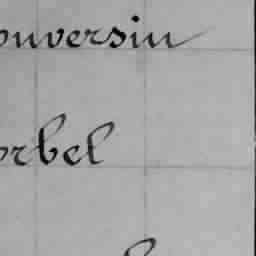 onversin
orbel